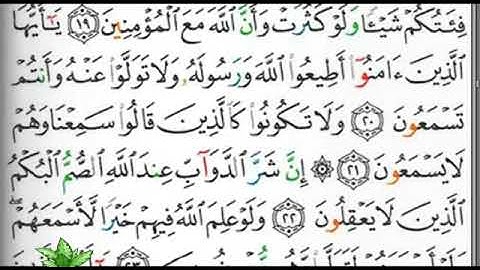 فِئَتُكُمْ شَيْـًٔا وَلَوْ كَثُرَتْ وَأَنَّ ٱللَّهَ مَعَ ٱلْمُؤْمِنِينَ ١٩ يَـٰٓأَيُّهَا
ٱلَّذِينَ ءَامَنُوٓا۟ أَطِيعُوا۟ ٱللَّهَ وَرَسُولَهُۥ وَلَا تَوَلَّوْا۟ عَنْهُ وَأَنتُمْ
تَسْمَعُونَ ٢٠ وَلَا تَكُونُوا۟ كَٱلَّذِينَ قَالُوا۟ سَمِعْنَا وَهُمْ
لَا يَسْمَعُونَ ٢١ ۞ إِنَّ شَرَّ ٱلدَّوَآبِّ عِندَ ٱللَّهِ ٱلصُّمُّ ٱلْبُكْمُ
ٱلَّذِينَ لَا يَعْقِلُونَ ٢٢ وَلَوْ عَلِمَ ٱللَّهُ فِيهِمْ خَيْرًا لَّأَسْمَعَهُمْ